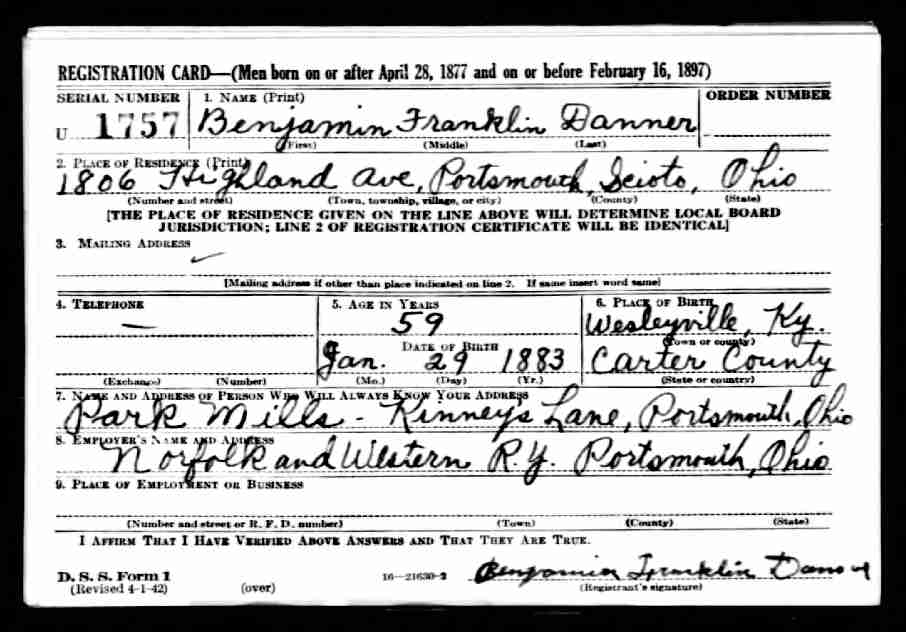 REGISTRATION CARD—(Men born on or after April 28, 1877 and on or before February 16, 1897)
SERIAL NUMBER 1. NAME (Print) ORDER NUMBER
U 1757 Benjamin Franklin Danner
(First) (Middle) (Last)
2. PLACE OF RESIDENCE (Print)
1806 Highland Ave, Portsmouth, Scioto, Ohio
(Number and street) (Town, township, village, or city) (County) (State)
[THE PLACE OF RESIDENCE GIVEN ON THE LINE ABOVE WILL DETERMINE LOCAL BOARD
JURISDICTION; LINE 2 OF REGISTRATION CERTIFICATE WILL BE IDENTICAL]
3. MAILING ADDRESS
[Mailing address if other than place indicated on line 2. If same insert word same]
4. TELEPHONE 5. AGE IN YEARS 6. PLACE OF BIRTH
— 59 Wesleyville, Ky.
DATE OF BIRTH (Town or county)
Jan. 29 1883 Carter County
(Exchange) (Number) (Mo.) (Day) (Yr.) (State or country)
7. NAME AND ADDRESS OF PERSON WHO WILL ALWAYS KNOW YOUR ADDRESS
Park Mills - Kinney's Lane, Portsmouth, Ohio
8. EMPLOYER'S NAME AND ADDRESS
Norfolk and Western R.y. Portsmouth, Ohio
9. PLACE OF EMPLOYMENT OR BUSINESS
(Number and street or R. F. D. number) (Town) (County) (State)
I AFFIRM THAT I HAVE VERIFIED ABOVE ANSWERS AND THAT THEY ARE TRUE.
D. S. S. Form 1 16—21630-2 Benjamin Franklin Danner
(Revised 4-1-42) (over) (Registrant's signature)